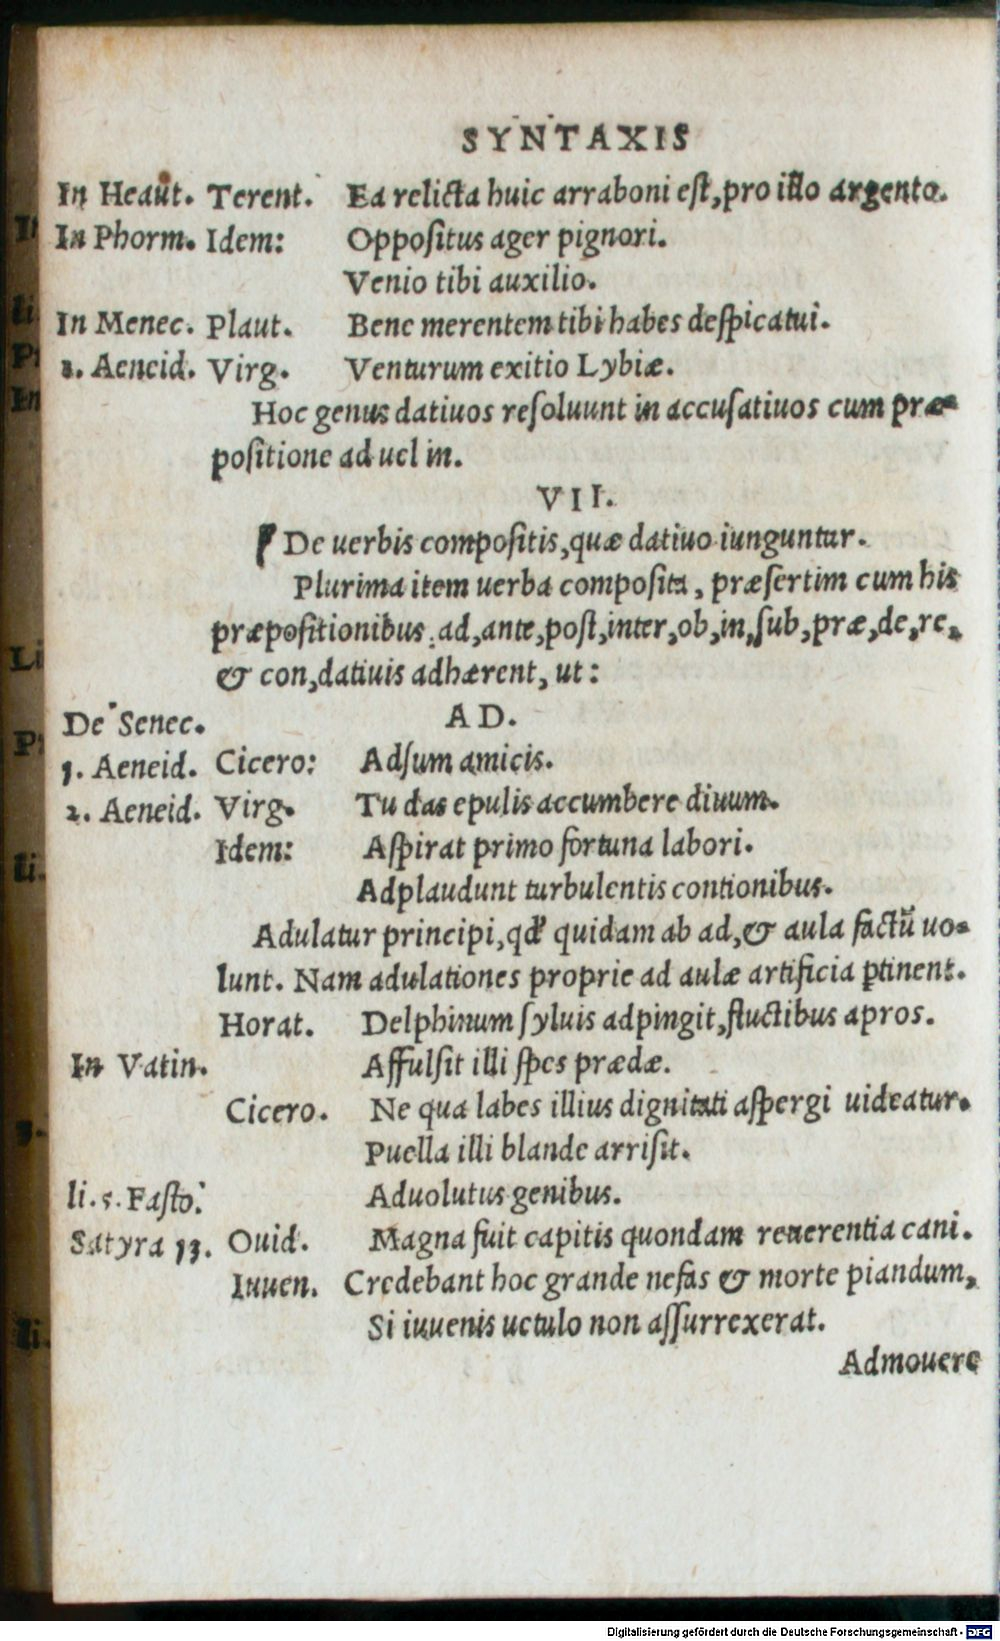 SYNTAXIS
In Heaut. Terent. Ea relicta huic arraboni est, pro illo argento.
In Phorm. Idem: Oppositus ager pignori.
Venio tibi auxilio.
In Menec. Plaut. Bene merentem tibi habes despicatui.
1. Aeneid. Virg. Venturum exitio Lybiæ.
Hoc genus datiuos resoluunt in accusatiuos cum præ-
positione ad uel in.
VII.
De uerbis compositis, quæ datiuo iunguntur.
Plurima item uerba composita, præsertim cum his
præpositionibus, ad, ante, post, inter, ob, in, sub, præ, de, re,
& con, datiuis adhærent, ut:
De Senec. AD.
1. Aeneid. Cicero: Adsum amicis.
2. Aeneid. Virg. Tu das epulis accumbere diuum.
Idem: Aspirat primo fortuna labori.
Adplaudunt turbulentis contionibus.
Adulatur principi, qđ quidam ab ad, & aula factū uo-
lunt. Nam adulationes proprie ad aulæ artificia ꝑtinent.
Horat. Delphinum syluis adpingit, fluctibus apros.
In Vatin. Affulsit illi spes prædæ.
Cicero. Ne qua labes illius dignitati aspergi uideatur.
Puella illi blande arrisit.
li. 5. Fasto. Aduolutus genibus.
Satyra 13. Ouid. Magna fuit capitis quondam reuerentia cani.
Iuuen. Credebant hoc grande nefas & morte piandum,
Si iuuenis uetulo non assurrexerat.
Admouere
Digitalisierung gefördert durch die Deutsche Forschungsgemeinschaft - DFG